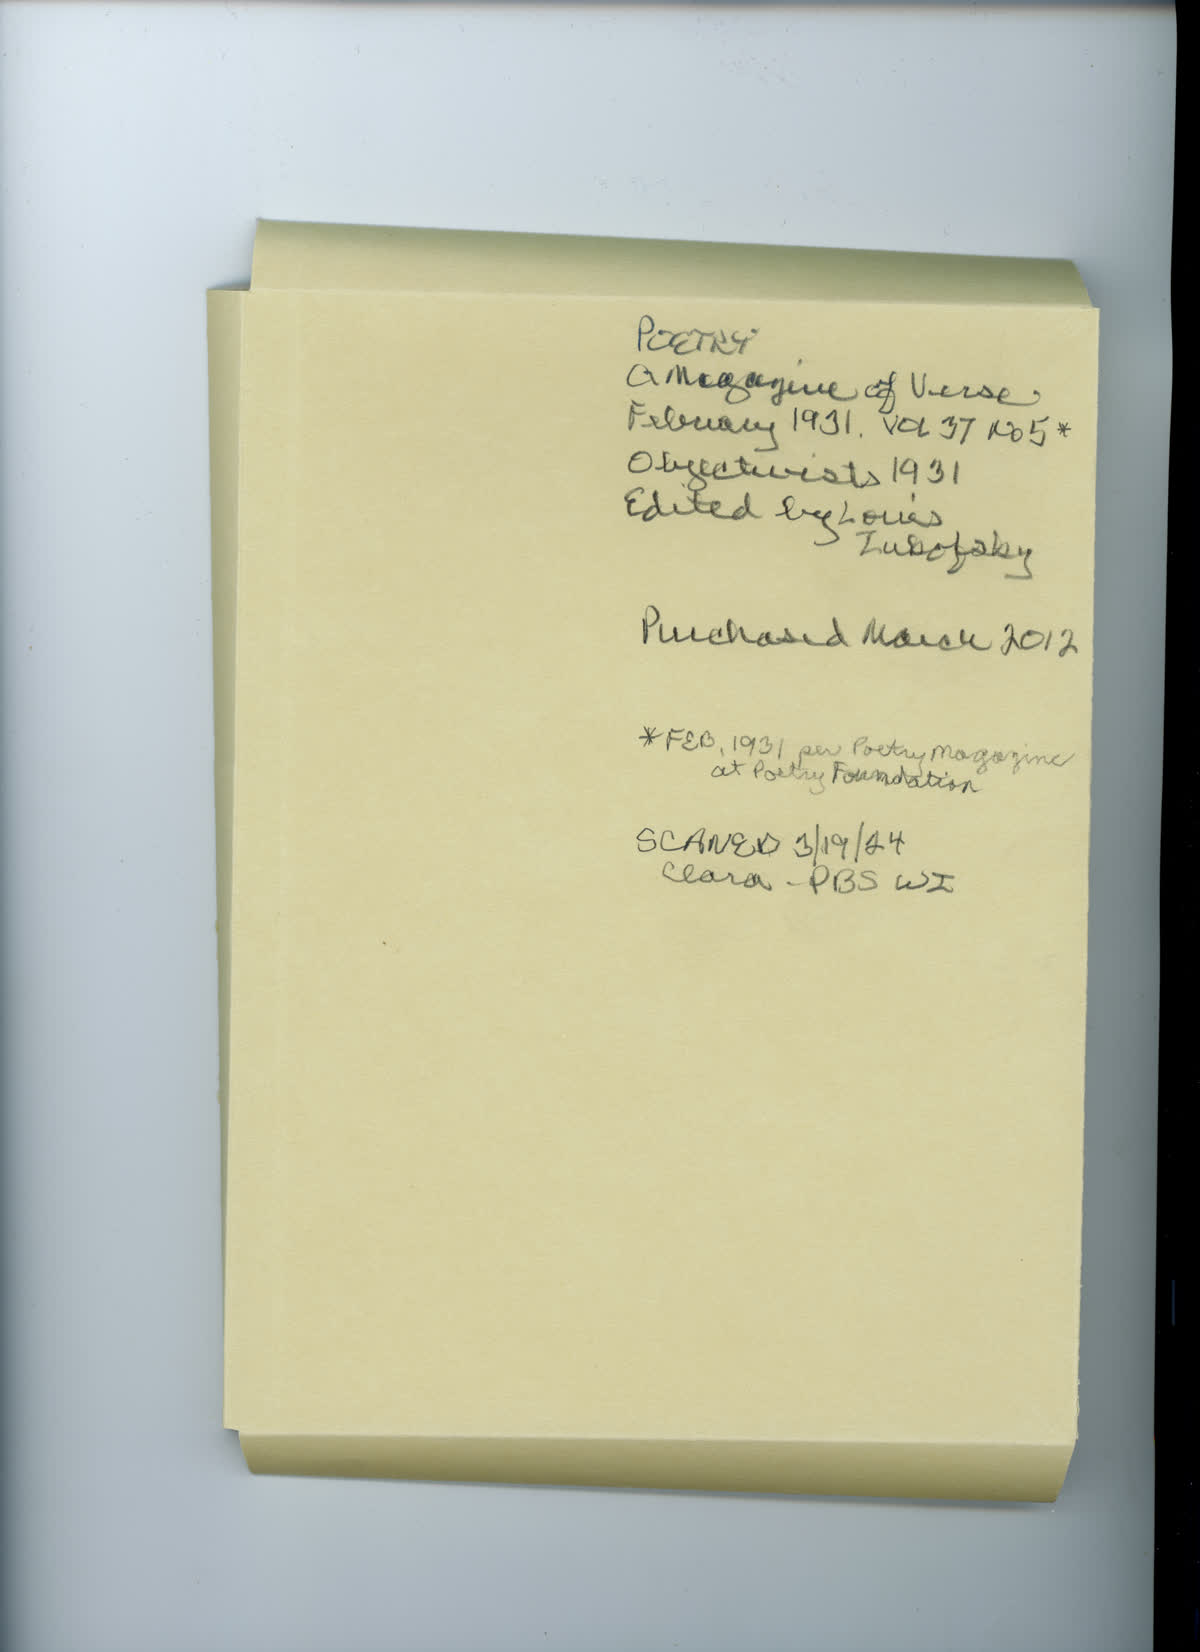 POETRY
A Magazine of Verse
February 1931. Vol 37 No 5*
Objectivists 1931
Edited by Louis
Zukofsky
Purchased March 2012
*FEB, 1931 per Poetry Magazine
at Poetry Foundation
SCANED 3/19/24
Clara - PBS WI